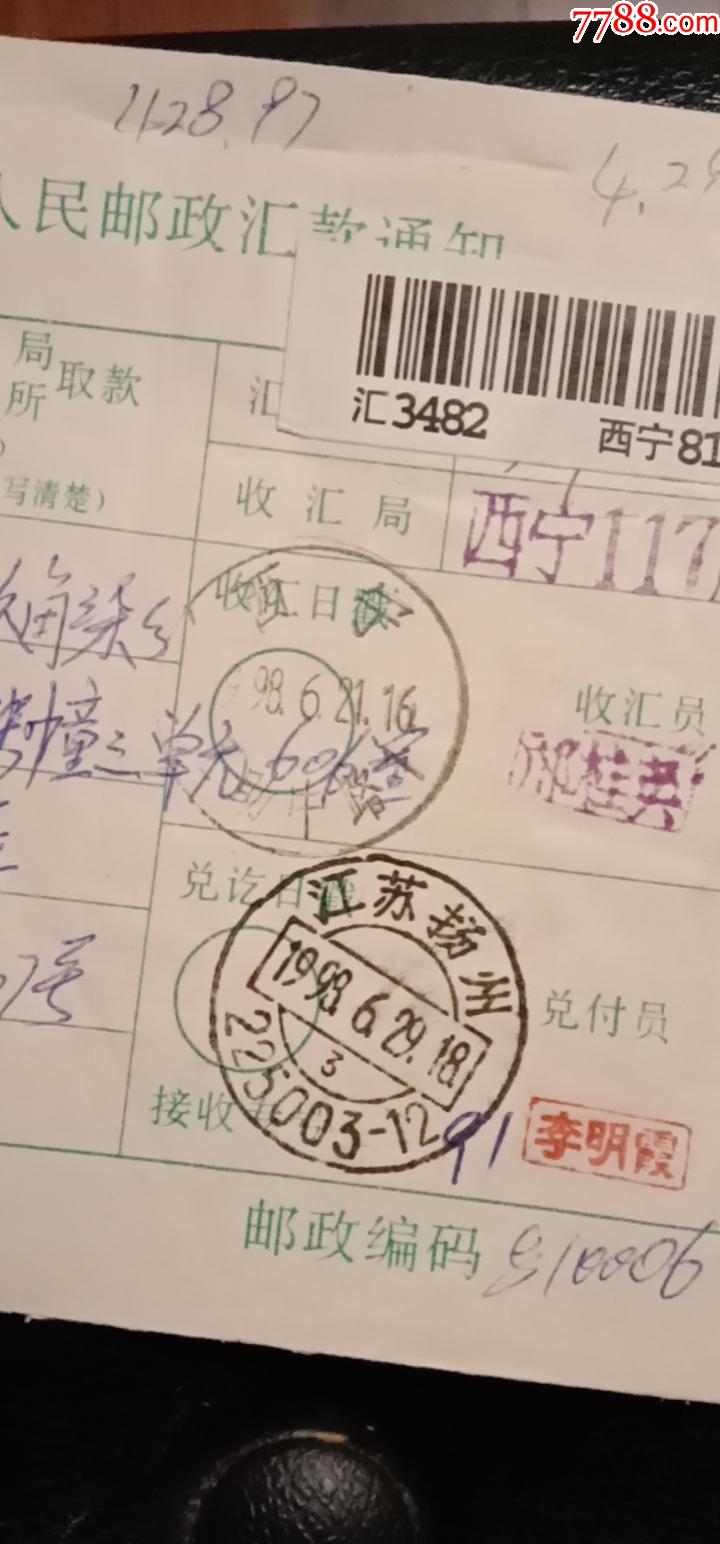 7788.com
4.28.97
4.29
人民邮政汇款通知
局
所
取款
写清楚）
汇
汇3482
西宁81
收汇局
西宁117
收汇日戳
98.6.21.16
收汇员
幢三单元606室
兑讫日戳
江苏扬州
1998.6.29.18
3
225003-12
兑付员
号
接收
91
李明霞
邮政编码
810006